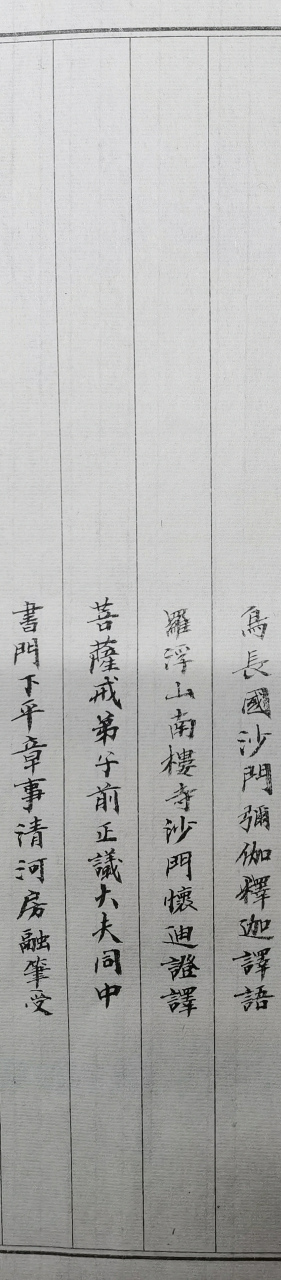 烏長國沙門彌伽釋迦譯語
羅浮山南樓寺沙門懷迪證譯
菩薩戒弟子前正議大夫同中
書門下平章事清河房融筆受